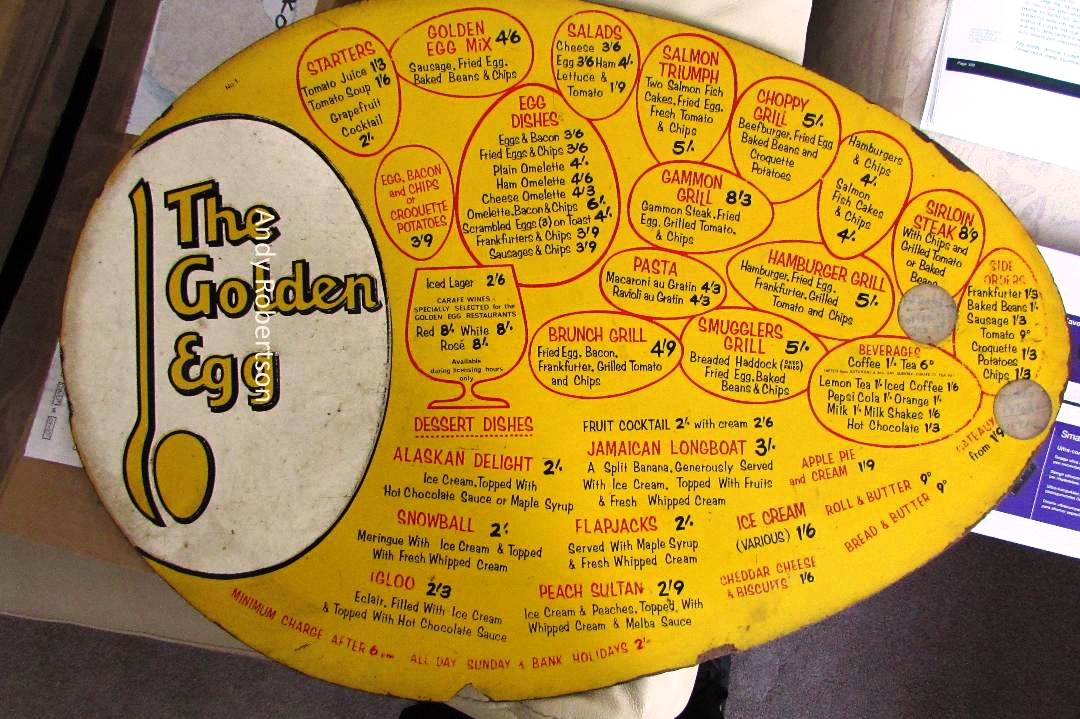 No.1
The
Golden
Egg
AndyRobertson
STARTERS
Tomato Juice 1'3
Tomato Soup 1'6
Grapefruit
Cocktail
2/-
GOLDEN
EGG MIX 4'6
Sausage, Fried Egg,
Baked Beans & Chips
SALADS
Cheese 3'6
Egg 3'6 Ham 4/-
Lettuce &
Tomato 1'9
SALMON
TRIUMPH
Two Salmon Fish
Cakes, Fried Egg,
Fresh Tomato
& Chips
5/-
CHOPPY
GRILL 5/-
Beefburger, Fried Egg
Baked Beans and
Croquette
Potatoes
Hamburgers
& Chips
4/-
Salmon
Fish Cakes
& Chips
4/-
SIRLOIN
STEAK 8'9
With Chips and
Grilled Tomato
or Baked
Beans
SIDE
ORDERS
Frankfurter 1'3
Baked Beans 1/-
Sausage 1'3
Tomato 9ᴰ
Croquette
Potatoes 1'3
Chips 1'3
EGG, BACON
and CHIPS
or
CROQUETTE
POTATOES
3'9
EGG
DISHES
Eggs & Bacon 3'6
Fried Eggs & Chips 3'6
Plain Omelette 4/-
Ham Omelette 4'6
Cheese Omelette 4'3
Omelette, Bacon & Chips 6/-
Scrambled Eggs (3) on Toast 4/-
Frankfurters & Chips 3'9
Sausages & Chips 3'9
GAMMON
GRILL 8'3
Gammon Steak, Fried
Egg, Grilled Tomato,
& Chips
PASTA
Macaroni au Gratin 4'3
Ravioli au Gratin 4'3
HAMBURGER GRILL
Hamburger, Fried Egg,
Frankfurter, Grilled 5/-
Tomato and Chips
Iced Lager 2'6
CARAFE WINES -
SPECIALLY SELECTED for the
GOLDEN EGG RESTAURANTS
Red 8/- White 8/-
Rosé 8/-
Available
during licensing hours
only
BRUNCH GRILL
Fried Egg, Bacon, 4'9
Frankfurter, Grilled Tomato
and Chips
SMUGGLERS
GRILL 5/-
Breaded Haddock
Fried Egg, Baked
Beans & Chips
BEVERAGES
Coffee 1/- Tea 6ᴰ
Lemon Tea 1/- Iced Coffee 1'6
Pepsi Cola 1/- Orange 1/-
Milk 1/- Milk Shakes 1'6
Hot Chocolate 1'3
from 1'9
DESSERT DISHES
FRUIT COCKTAIL 2/- with cream 2'6
ALASKAN DELIGHT 2/-
Ice Cream, Topped With
Hot Chocolate Sauce or Maple Syrup
JAMAICAN LONGBOAT 3/-
A Split Banana, Generously Served
With Ice Cream, Topped With Fruits
& Fresh Whipped Cream
APPLE PIE
and CREAM 1'9
SNOWBALL 2/-
Meringue With Ice Cream & Topped
With Fresh Whipped Cream
FLAPJACKS 2/-
Served With Maple Syrup
& Fresh Whipped Cream
ICE CREAM
(VARIOUS) 1'6
ROLL & BUTTER 9ᴰ
BREAD & BUTTER 9ᴰ
IGLOO 2'3
Eclair, Filled With Ice Cream
& Topped With Hot Chocolate Sauce
PEACH SULTAN 2'9
Ice Cream & Peaches, Topped, With
Whipped Cream & Melba Sauce
CHEDDAR CHEESE
& BISCUITS 1'6
MINIMUM CHARGE AFTER 6pm ALL DAY SUNDAY & BANK HOLIDAYS 2/-